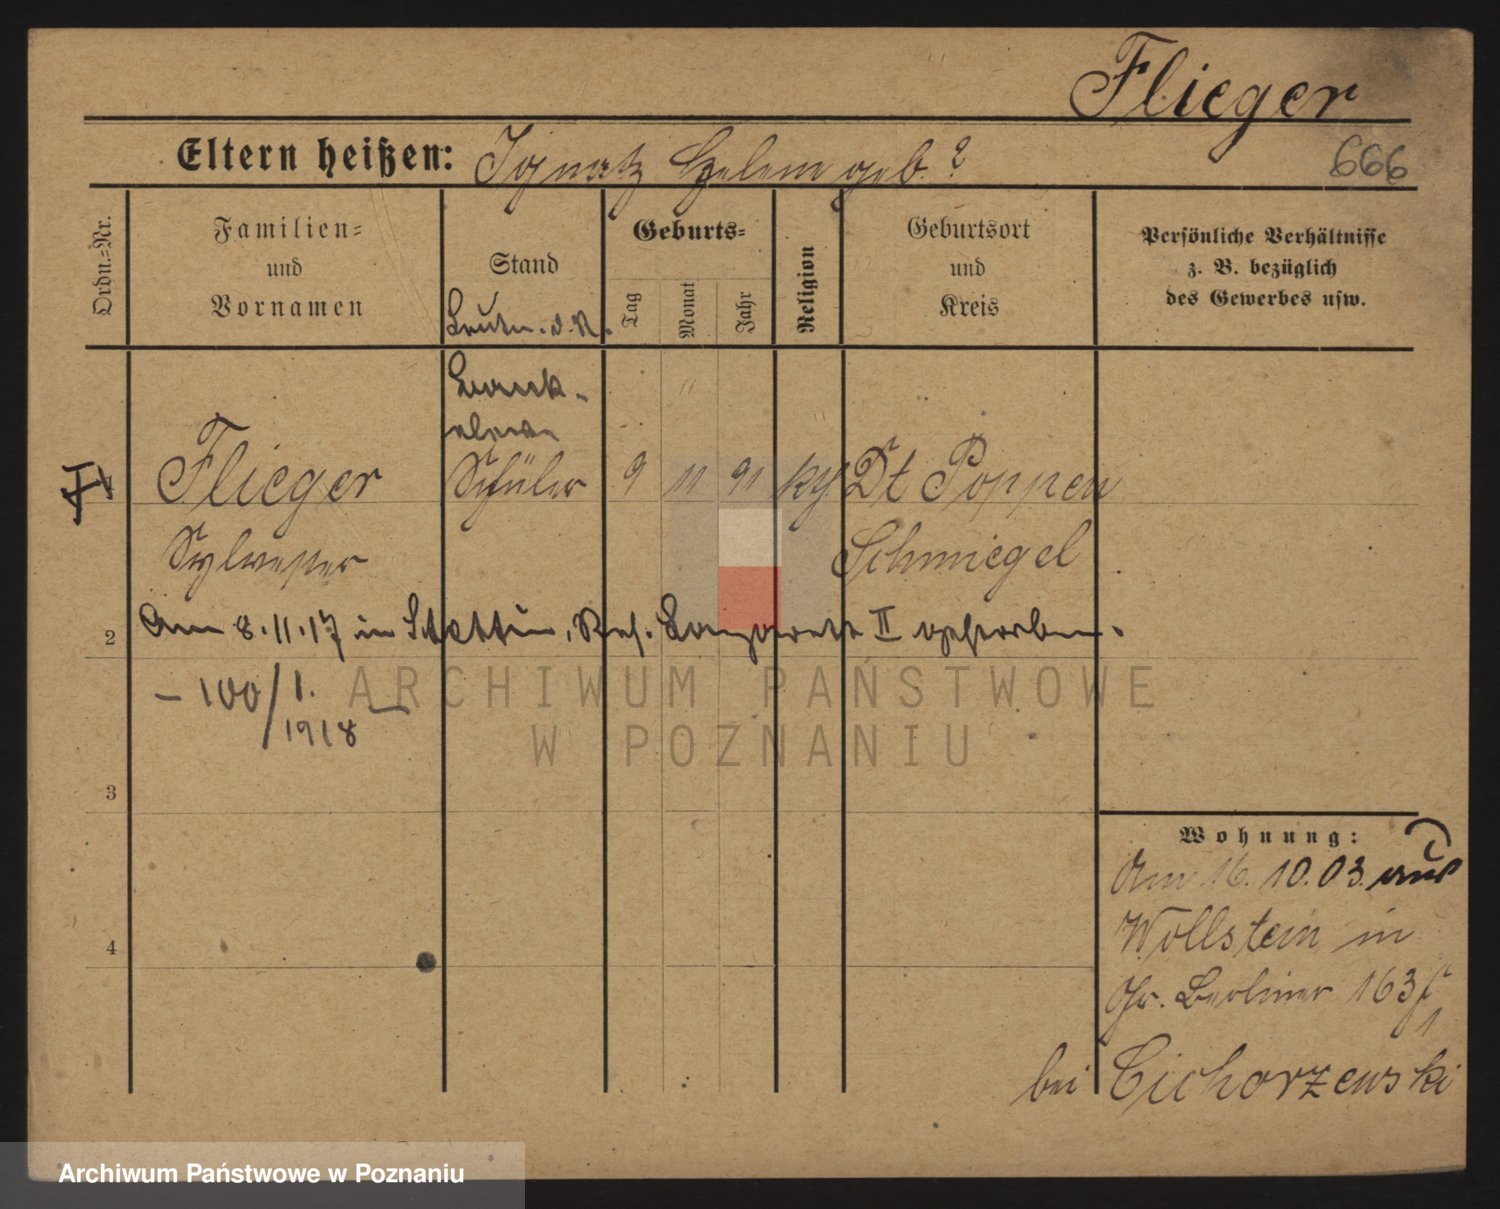 Flieger
666
Eltern heißen: Ignatz Helene geb. ?
Ordn.-Nr.
Familien-
und
Vornamen
Stand
Geburts-
Tag
Monat
Jahr
Religion
Geburtsort
und
Kreis
Persönliche Verhältnisse
z. B. bezüglich
des Gewerbes usw.
Leutn. d. R.
Bank-
eleve
1 Flieger Schüler 9 11 91 kth Dt Poppen
Sylvester Schmiegel
2 Am 8.11.17 in Stettin, Res. Lazarett II gestorben.
– 100/1. 1918 –
3
4
Wohnung:
Am 16.10.03 aus
Wollstein in
Gr. Berliner 163
bei Cichorzewski
ARCHIWUM PAŃSTWOWE
W POZNANIU
Archiwum Państwowe w Poznaniu